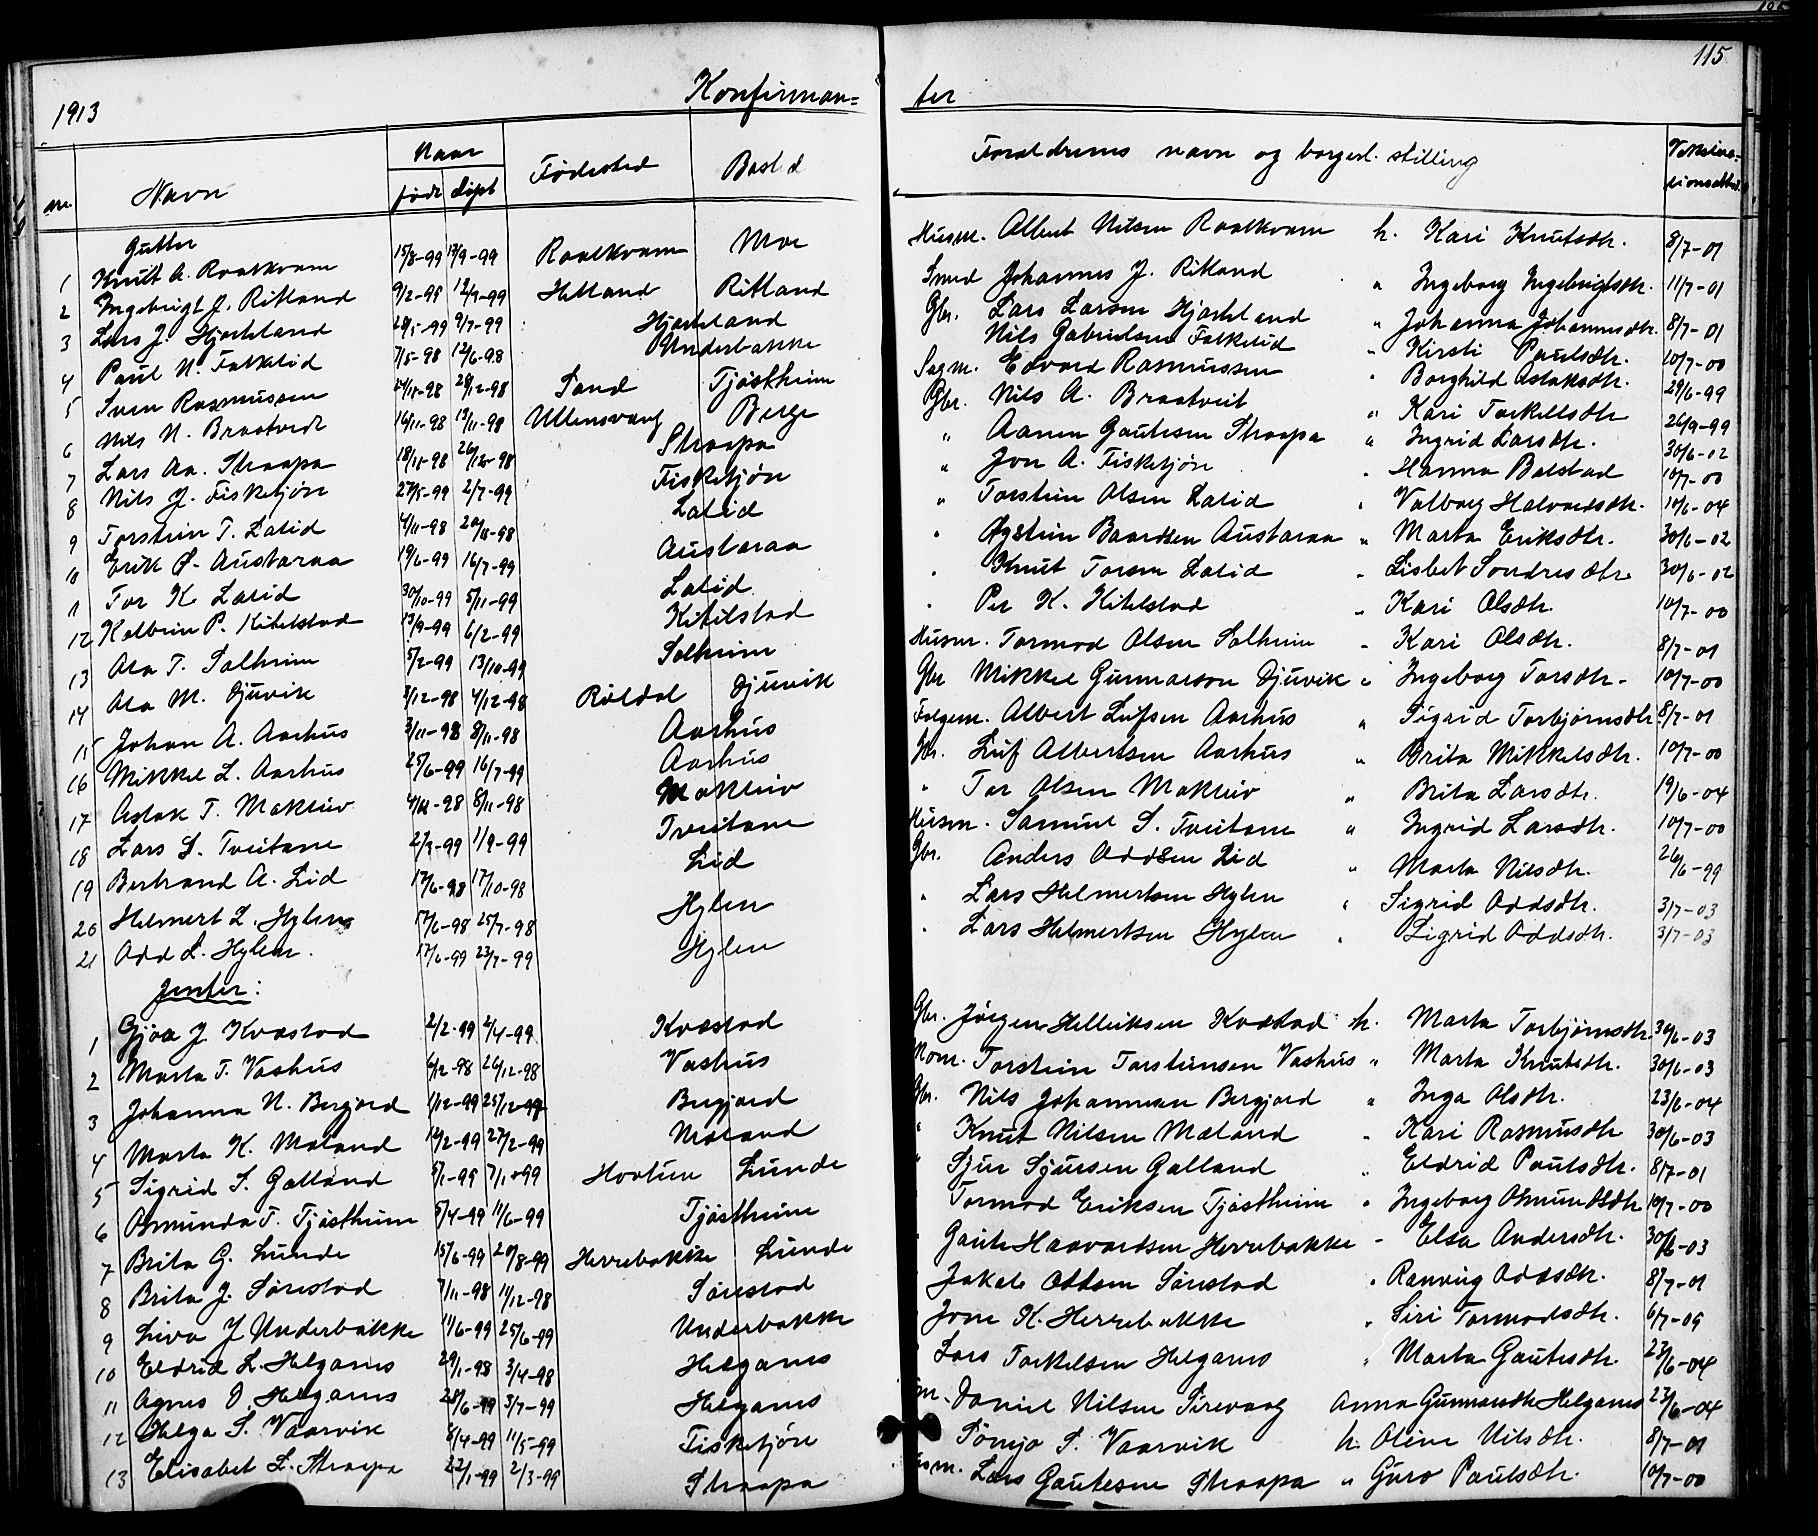 1913 Konfirman= ter 115
nr. Navn Naar født døpt Fødested Bosted Foreldrenes navn og borgerl. stilling
Gutter
1 Knut A. Roalkvam 15/8-99 17/9-99 Roalkvam Moe Husm. Albert Nilsen Roalkvam h. Kari Knutsdtr. 8/7-01
2 Ingebrigt J. Rikland 9/2-99 12/9-99 Helland Rikland Smed Johannes J. Rikland " Ingeborg Ingebrigtsdtr. 11/7-01
3 Lars J. Hjorteland 9/7-99 Hjorteland Gbr. Lars Larsen Hjorteland " Johanna Johannesdtr. 8/7-01
4 Paul N. Falkelid 7/5-98 12/6-98 Underbakke Nils Gabrielsen Falkelid " Kirsti Paulsdtr. 10/7-00
5 Sven Rasmussen Sand Tjøstheim Sagm. Edvard Rasmussen " Borghild Aslaksdtr. 29/6-99
6 Nils N. Braatveit 16/11-98 Ullensvang Berge Gbr. Nils A. Braatveit " Kari Torkellsdtr 26/9-99
7 Lars Aa. Straapa 18/11-98 26/12-98 Straapa " Aanen Gautesen Straapa " Ingrid Larsdtr. 30/6-02
8 Nils J. Fisketjøn 27/5-99 2/7-99 Fisketjøn " Jon A. Fisketjøn " Hanna Bolstad 10/7-00
9 Torstein T. Lalid 4/11-98 Lalid " Torstein Olsen Lalid " Valborg Halvardsdtr. 10/6-04
10 Erik Ø. Austaraa 19/6-99 16/7-99 Austaraa " Øystein Baardsen Austaraa " Marta Eriksdtr. 30/6-02
11 Tor K. Lalid 30/10-99 5/11-99 Lalid " Knut Torsen Lalid " Lisbet Sondresdtr 30/6-02
12 Kolbein P. Kitelstad 6/2-99 Kitelstad " Per K. Kitelstad " Kari Olsdtr. 10/7-00
13 Ola T. Solheim 5/2-99 13/10-99 Solheim Husm. Tormod Olsen Solheim " Kari Olsdtr. 8/7-01
14 Ola M. Djuvik 3/12-98 4/12-98 Røldal Djuvik Gbr Mikkel Gunnarson Djuvik " Ingeborg Torsdtr. 10/7-00
15 Johan A. Aarhus 3/11-98 8/11-98 Aarhus Folgem. Albert Leifsen Aarhus " Sigrid Torbjørnsdtr 8/7-01
16 Mikkel L. Aarhus 25/6-99 16/7-99 Aarhus Gbr. Leif Albertsen Aarhus " Brita Mikkelsdtr. 10/7-00
17 Aslak T. Mokleiv 8/11-98 Mokleiv " Tor Olsen Mokleiv " Brita Larsdtr. 19/6-04
18 Lars S. Tveitane 2/7-99 1/9-99 Tveitane Husm. Samuel S. Tveitane " Ingrid Larsdtr. 10/7-00
19 Bertrand A. Lid 12/6-98 17/10-98 Lid Gbr. Anders Oddsen Lid " Marta Nilsdtr. 26/6-99
20 Helmert L. Hylen 17/6-98 25/7-98 Hylen " Lars Helmertsen Hylen " Sigrid Oddsdtr. 3/7-03
21 Odd L. Hylen. 17/6-99 23/7-99 Hylen " Lars Helmertsen Hylen " Sigrid Oddsdtr. 3/7-03
Jenter:
1 Gjøa J. Kvæstad 2/2-99 2/4-99 Kvæstad Gbr. Jørgen Helliksen Kvæstad h. Marta Torbjørnsdtr. 30/6-03
2 Marta T. Vashus 26/12-98 Vashus Torstein Torsteinsen Vashus " Marta Knutsdtr. 30/6-03
3 Johanna N. Bergjord 1/12-99 25/12-99 Bergjord Gbr. Nils Johannesen Bergjord " Inga Olsdtr. 23/6-04
4 Marta K. Mæland 14/2-99 27/2-99 Mæland " Knut Nilsen Mæland " Kari Rasmusdtr 30/6-03
5 Sigrid S. Galland 5/1-99 Hovland Lunde " Sjur Sjursen Galland " Eldrid Paulsdtr. 8/7-01
6 Osmunda T. Tjøstheim 5/4-99 11/6-99 Tjøstheim Tormod Eriksen Tjøstheim " Ingeborg Osmundsdtr 10/7-00
7 Brita G. Lunde 15/6-99 20/8-99 Herrebakke Lunde Gaute Haavardsen Herrebakke " Elsa Andersdtr. 30/6-03
8 Brita J. Sørestad 7/11-98 11/12-98 Sørestad Jakob Oddsen Sørestad " Ranveig Oddsdtr. 8/7-01
9 Liva J Underbakke 11/6-99 25/6-99 Underbakke Jone K. Herrebakke " Siri Tormodsdtr. 6/7-09
10 Eldrid L. Helganes 29/1-98 3/4-98 Helganes Lars Torkelsen Helganes " Marta Gautesdtr. 23/6-04
11 Agnes D. Helganes 28/6-99 3/7-99 Helganes Daniel Nilsen Sirevaag Anna Gunnarsdtr Helganes 23/6-04
12 Helga S. Vaarvik 8/4-99 11/5-99 Fisketjøn S. Vaarvik h. Oline Nilsdtr. 8/7-01
13 Elisabet L. Straapa 22/1-99 2/3-99 Straapa Lars Gautesen Straapa " Guro Paulsdtr. 10/7-00